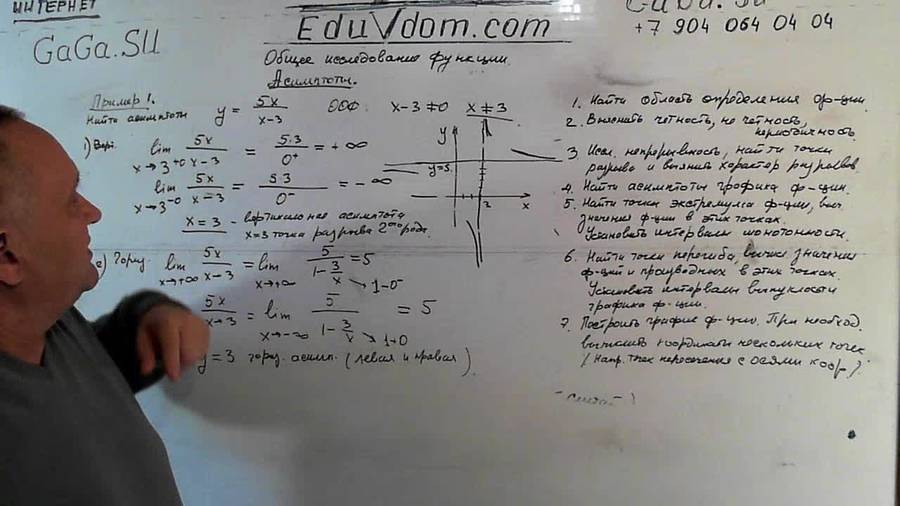 ИНТЕРНЕТ
GaGa.SU
EduVdom.com
GaGa.SU
+7 904 064 04 04
Общее исследование функции.
Асимптоты.
Пример 1.
Найти асимптоты
y = 5x / x-3 ООФ: x-3≠0 x≠3
1) Верт.
lim x→3+0 5x / x-3 = 5·3 / 0⁺ = +∞
lim x→3-0 5x / x-3 = 5·3 / 0⁻ = -∞
x=3 - вертикальная асимптота
x=3 точка разрыва 2ого рода.
2) Гориз. lim x→+∞ 5x / x-3 = lim x→+∞ 5 / 1-3/x = 5
1-0
5x / x-3 = lim x→-∞ 5 / 1-3/x = 5
1+0
y=3 гориз. асимп. (левая и правая).
y
y=5
x
1. Найти область определения ф-ции.
2. Выяснить четность, не четность,
периодичность
3. Иссл. непрерывность, найти точки
разрыва и выяснить характер разрывов.
4. Найти асимптоты графика ф-ции.
5. Найти точки экстремума ф-ции, выч.
значения ф-ции в этих точках.
Установить интервалы монотонности.
6. Найти точки перегиба, вычис. значения
ф-ций и производных в этих точках.
Установить интервалы выпуклости
графика ф-ции.
7. Построить график ф-ции. При необход.
вычислить координаты нескольких точек
(Напр. точек пересечения с осями коор.).